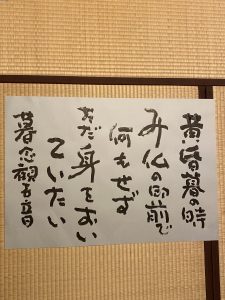 黄昏暮の時
み仏の御前で
何もせず
ただ身をおい
ていたい
暮念観音